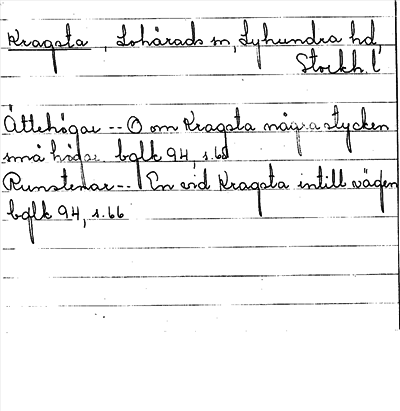 Kragsta, Lohärads sn, Lyhundra hd,
Stockh. l
Ättehögar -- O om Kragsta några stycken
små högar bglk 94, s. 65
Runstenar -- En vid Kragsta intill vägen
bglk 94, s. 66